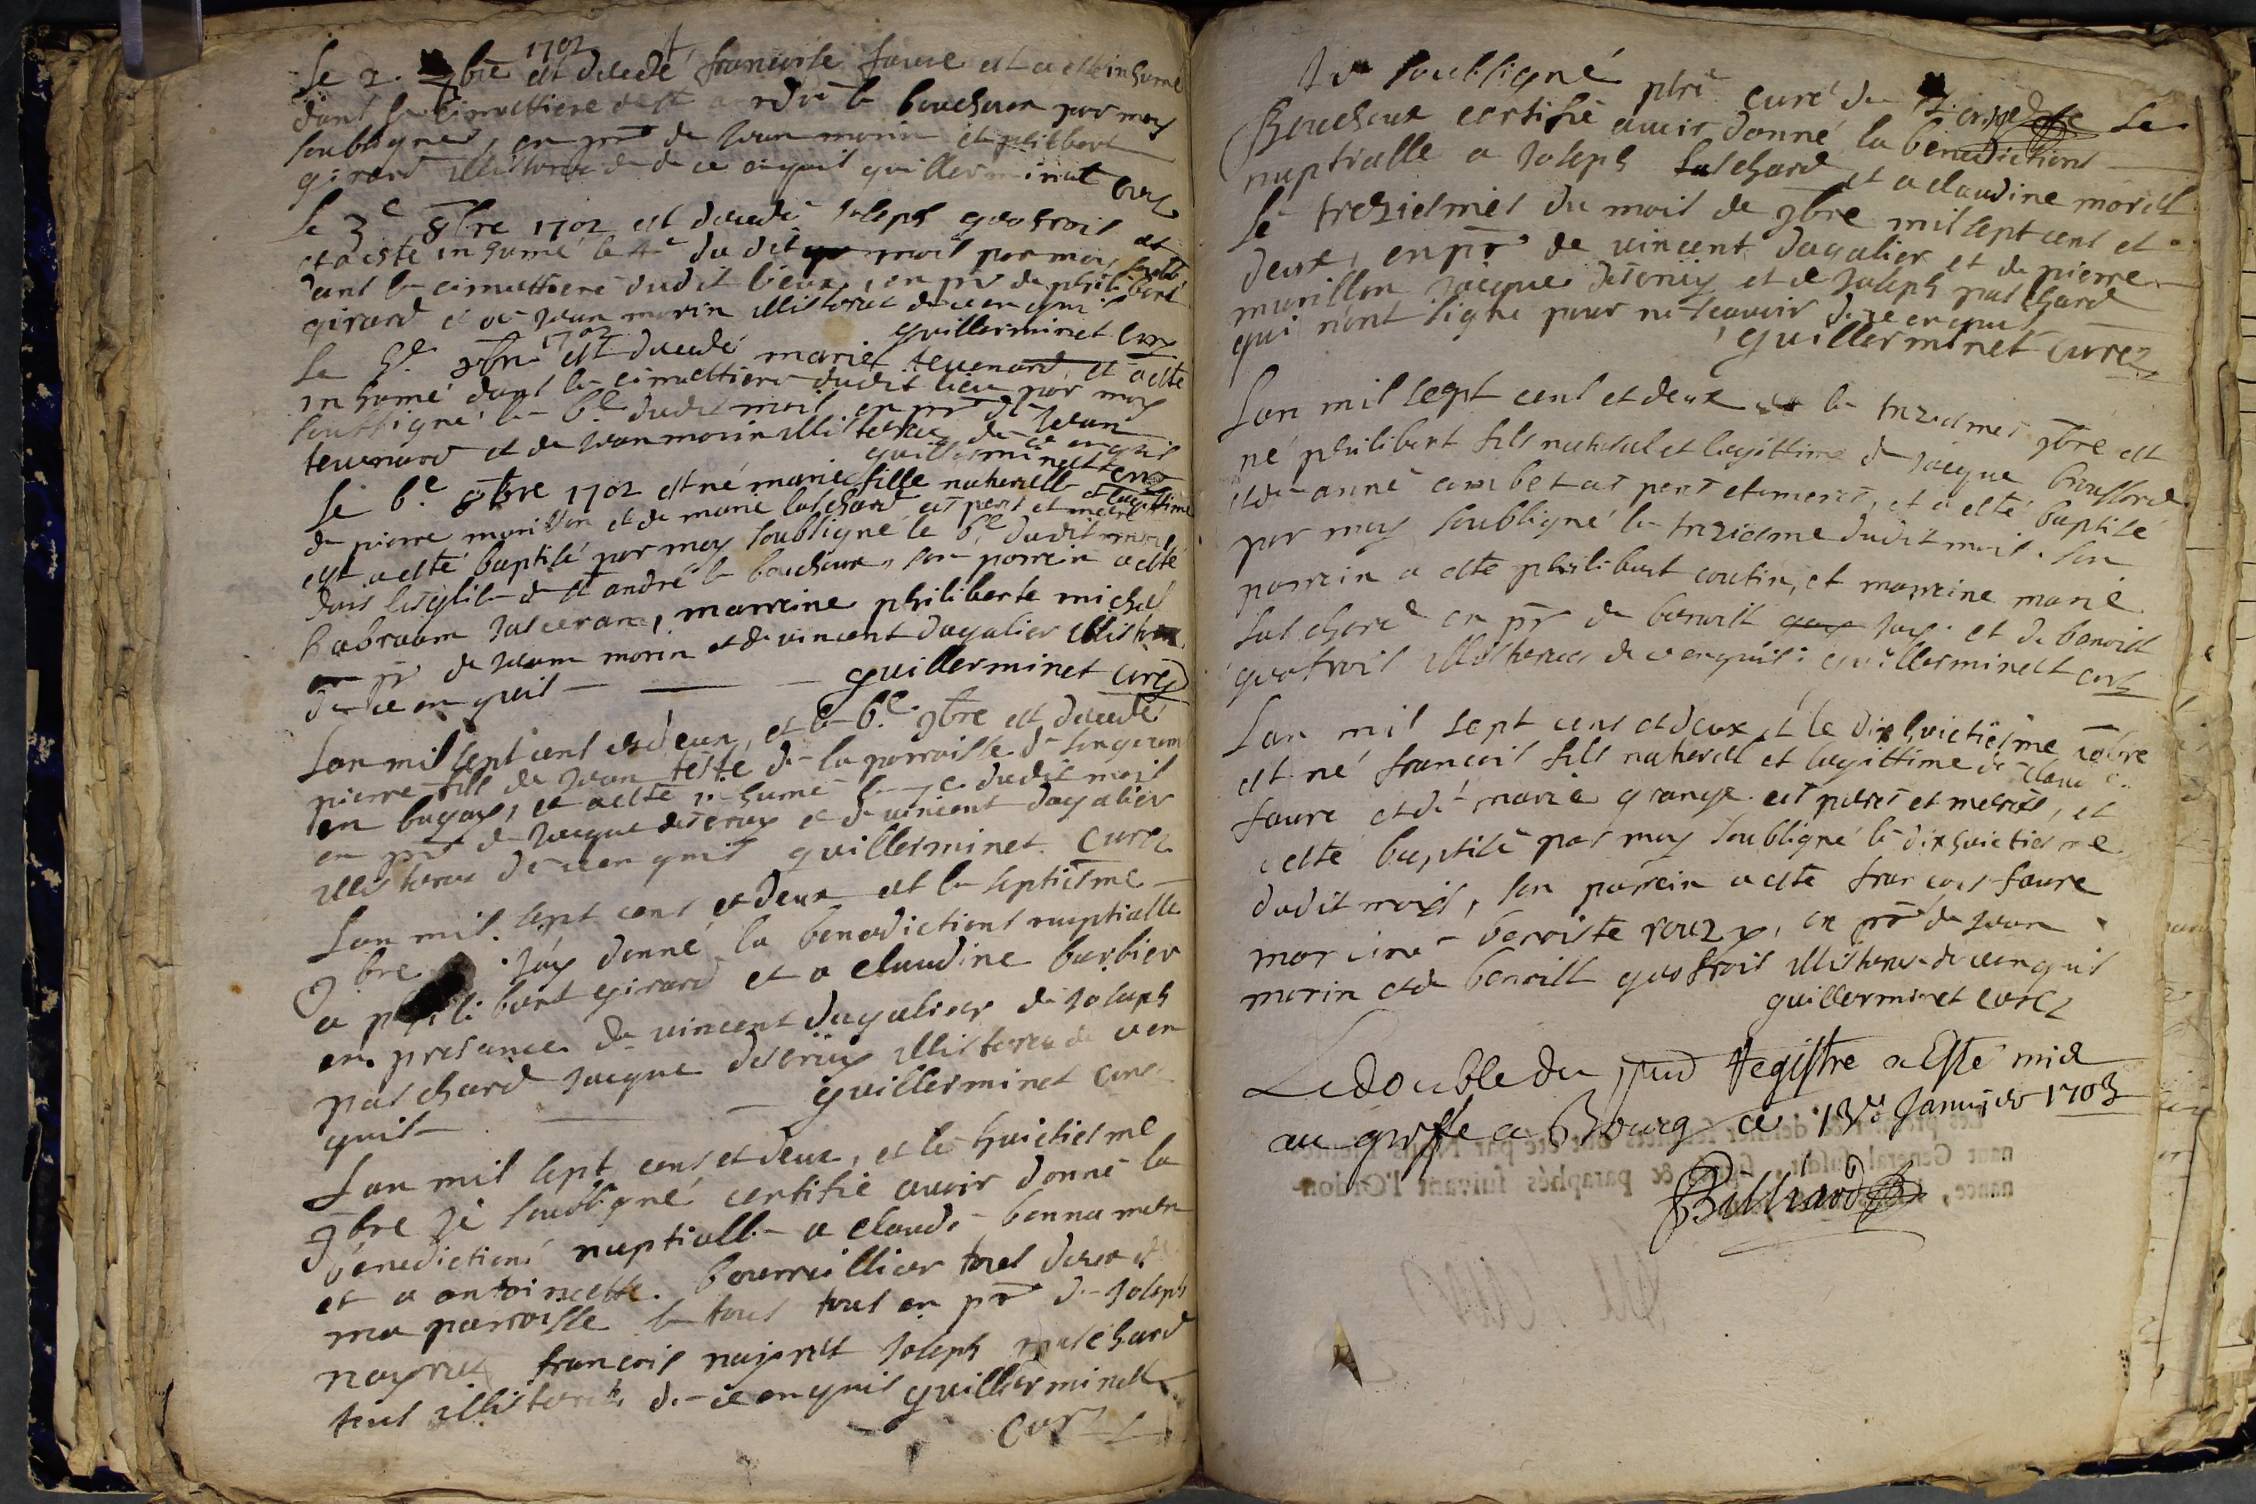 Le 2. 7bre 1702 est decedé francoise faure et a esté inhumé
dans le cimettiere de st andré le bouchoux par moy
soubsigné, en pre de Jean morin et philibert
girard illisterez de ce enquis guillerminet curé
Le 3e 8bre 1702 est decedé Joseph guofrois et
et a esté inhumé le 4e dudit mois par moy soubs
dans le cimettiere dudit lieux, en pre de philibert
girard et de Jean morin illisterez de ce enquis
guillerminet curé
Le 5e 1702 est decedé marie tevenard et a esté
inhumé dans le cimettiere dudit lieu par moy
soussigné le 6e dudit mois en pre de Jean
tevenard et de Jean morin illisterez de ce enquis
guillerminet curé
Le 6e 8bre 1702 est né marie fille naturelle et legittime
de pierre morillon et de marie laschard ses pere et mere
et a esté baptisé par moy soubsigné le 6e dudit mois
dans leseglise de st andré le bouchoux, son parrein a esté
habraam Jasceran, marreine philiberte michel
en pre de Jean morin et de vincent dagalier illisterez
de ce en quis guillerminet curé
Lan mil sept cens et deux, et le 6e 9bre est decedé
pierre fils de Jean teste de la parroisse de
en bugey, et a esté inhumé le 7e dudit mois
en pre de Jacque et de vincent dagalier
illisterez de ce en quis guillerminet. curé
Lan mil sept cens et deux et le septiesme
9bre Jay donné la benedictions nuptialle
a philibert girard et a claudine barbier
en presance de vincent dagalier de Joseph
paschard Jacque illisterez de ce en
quis guillerminet curé
Lan mil sept cens et deux, et le huictiesme
9bre Je soubsigné certifie avoir donné la
benedictions nuptialle a claude
et a antoinette. bourrillier tous deux de
ma parroisse le tous tous en pre de Joseph
francois Joseph paschard
tous illisterez de ce enquis guillerminet
curé
Je soubsigné ptre curé de st andré le
Bouchoux certifie avoir donné la benedictions
nuptialle a Joseph laschard et a claudine morel
le treziesmes du mois de 9bre mil sept cens et
deux, en pre de vincent dagalier et de pierre
morillon Jacque et de Joseph paschard
qui nont signé pour ne scavoir de ce enquis
guillerminet curé
Lan mil sept cens et deux le treziesmes 9bre est
né philibert fils naturel et legittime de Jacque broussard
et de anne combet ses pere et meres, et a esté baptisé
par moy soubsigné le treziesme dudit mois. son
parrein a esté philibert coutin, et marreine marie
laschard en pre de benoist Jay et de benoist
guofrois illisterez de ce enquis: guillerminet curé
Lan mil sept cens et deux et le dix huictiesme 10bre
est né francois fils naturel et legittime de claude
faure et de marie grange ses peres et meres, et
a esté baptisé par moy soubsigné le dixhuictiesme
dudit mois, son parrein a esté francois faure
mareine benoiste rouzx, en pre de Jean
morin et de benoist guofrois illisterez de ce enquis
guillerminet curé
Le double du pnt Registre a Esté mis
au greffe a Bourg ce Janvier 1703
Billiard